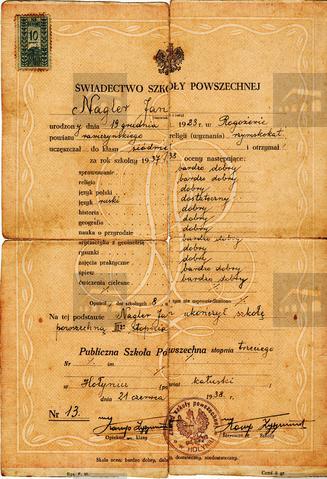 10
ŚWIADECTWO SZKOŁY POWSZECHNEJ
Nagler Jan
urodzony dnia 19 grudnia 1923 r. w Rogoźnie
powiatu religii (wyznania) rzymskokat.
uczęszczał do klasy siódmej i otrzymał
za rok szkolny 1937/38 oceny następujące:
sprawowanie bardzo dobry
religia bardzo dobry
język polski dobry
język ruski dostateczny
historia dobry
geografia dobry
nauka o przyrodzie dobry
arytmetyka z geometrią bardzo dobry
rysunki dobry
zajęcia praktyczne dobry
śpiew bardzo dobry
ćwiczenia cielesne bardzo dobry
Opuścił dni szkolnych 8, w tym nie usprawiedliwiono
Na tej podstawie Nagler Jan ukończył szkołę
powszechną III° stopnia
Publiczna Szkoła Powszechna stopnia trzeciego
Nr
w Hołyniu powiat kałuski
dnia 21 czerwca 1938 r.
Nr 13.
Opiekun klasy
Kierownik Szkoły
Skala ocen: bardzo dobry, dobry, dostateczny, niedostateczny.